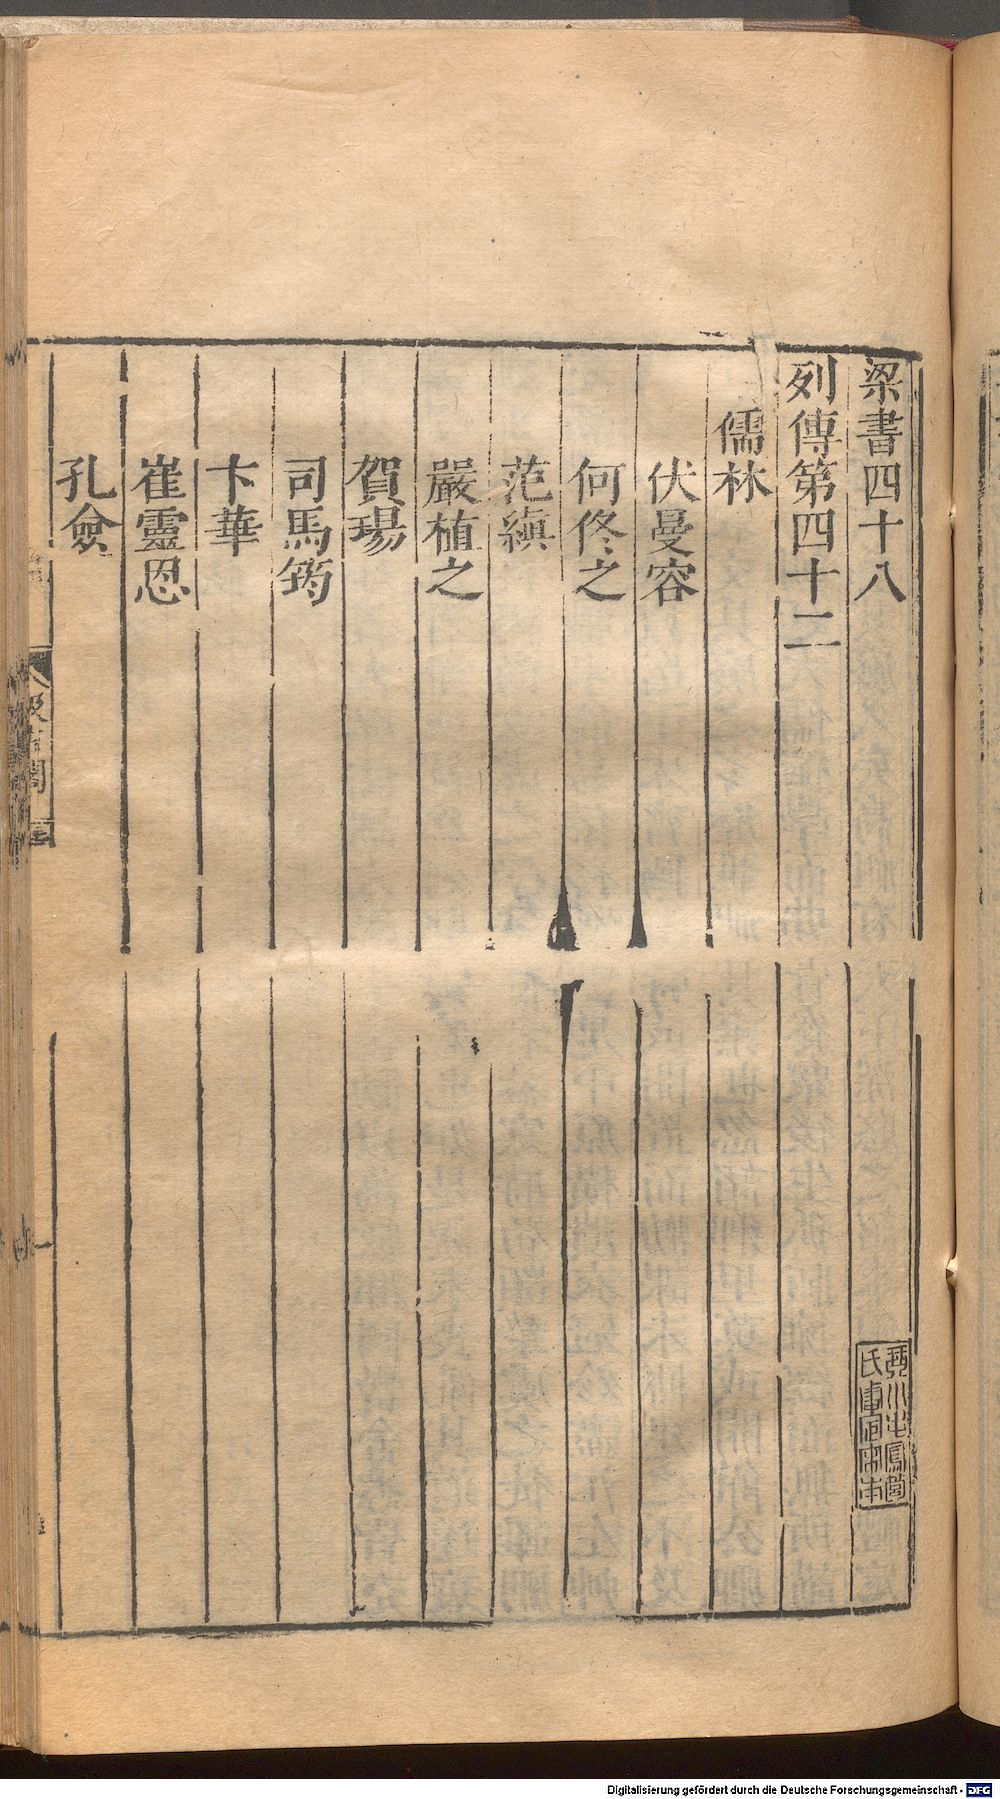 梁書四十八
列傳第四十二
儒林
伏曼容
何佟之
范縝
嚴植之
賀瑒
司馬筠
卞華
崔靈恩
孔僉
汲古閣
毛
氏
正
本
Digitalisierung gefördert durch die Deutsche Forschungsgemeinschaft - DFG